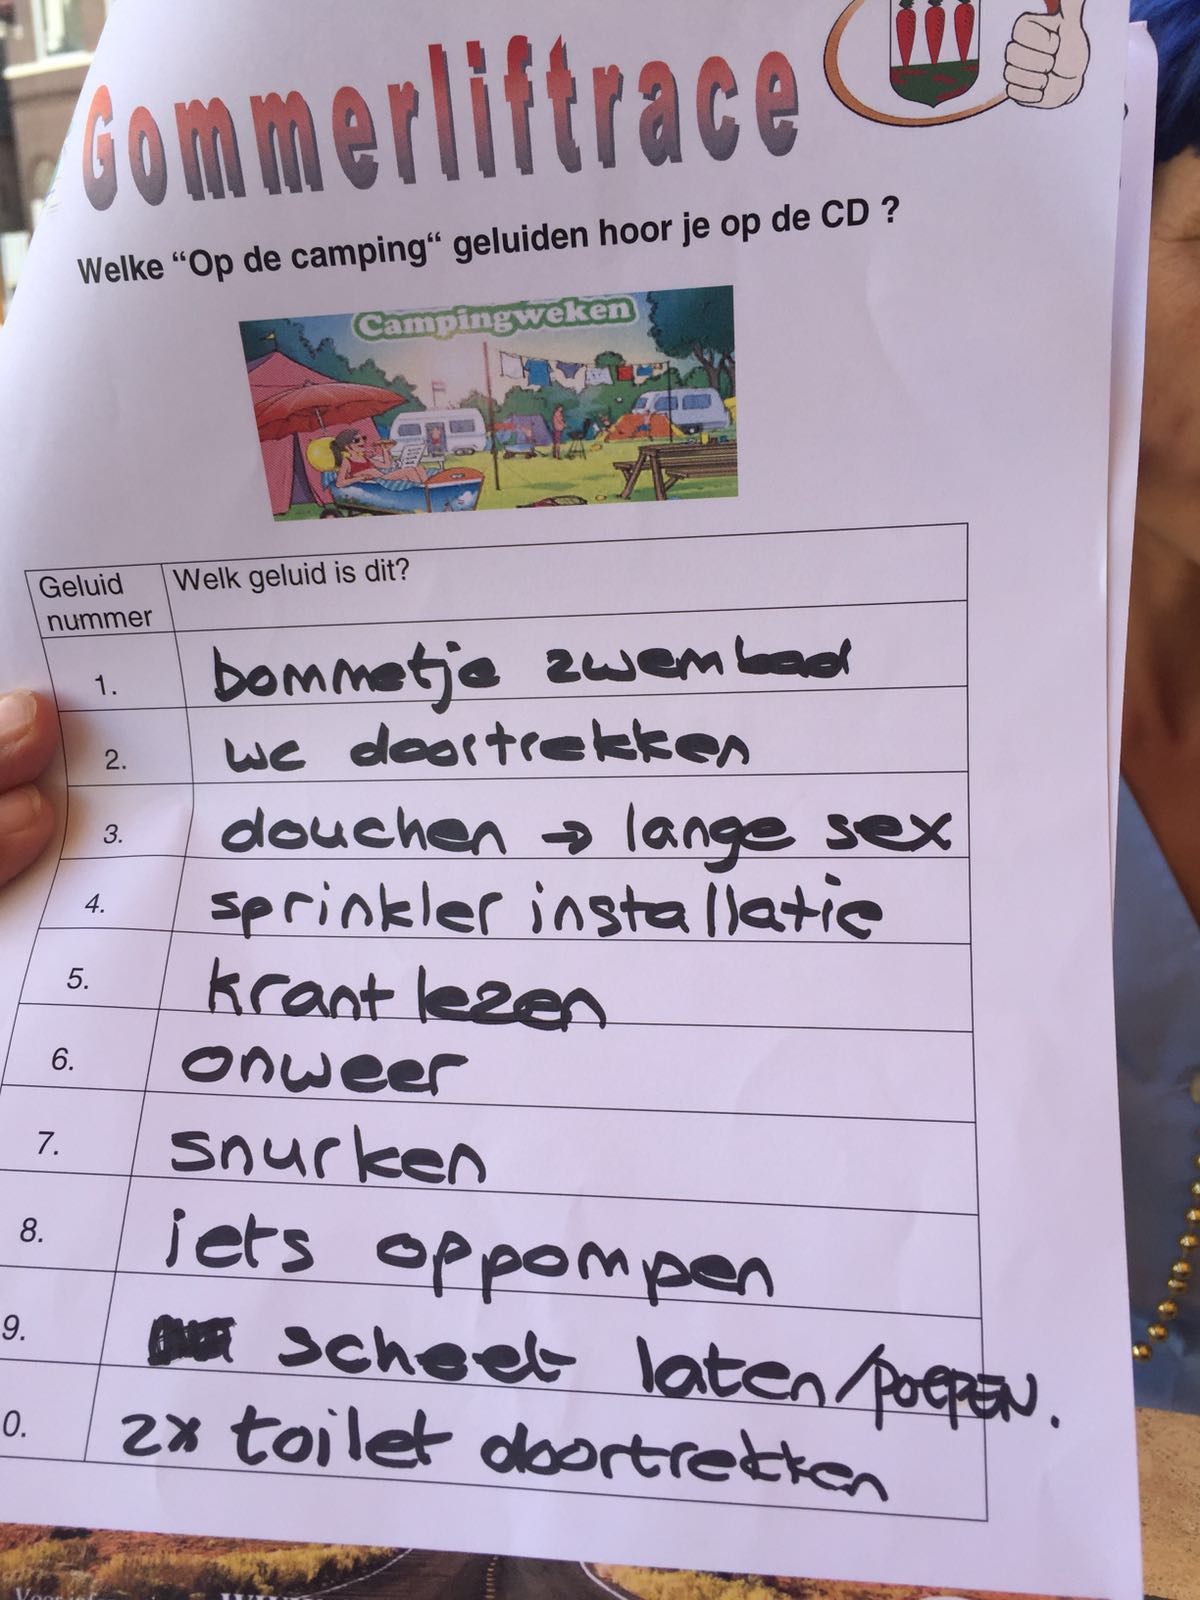 Gommerliftrace
Welke “Op de camping“ geluiden hoor je op de CD ?
Campingweken
Geluid nummer
Welk geluid is dit?
1. bommetje zwembad
2. wc doortrekken
3. douchen → lange sex
4. sprinkler installatie
5. krant lezen
6. onweer
7. snurken
8. iets oppompen
9. scheet laten/POEPEN.
0. 2x toilet doortrekken